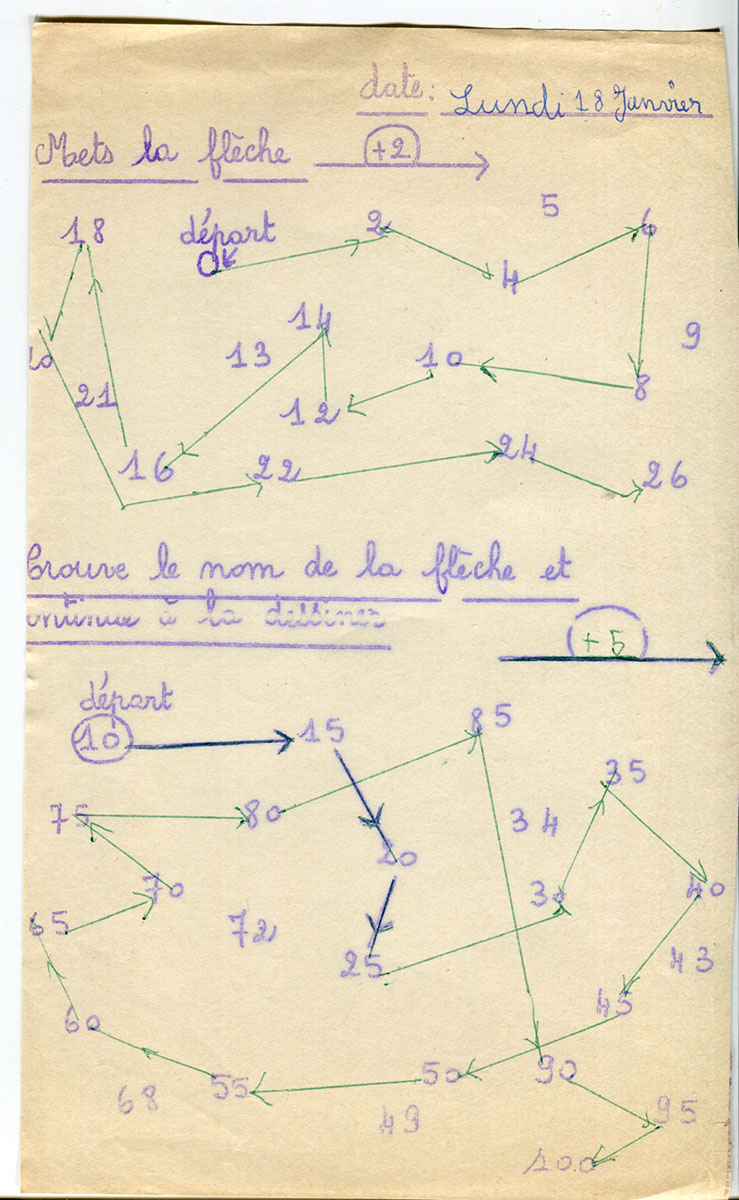 date: Lundi 18 Janvier
Mets la flèche +2
18 départ 2 5 6
0 4
14 9
13 10
21 12 8
16 22 24 26
Trouve le nom de la flèche et
ontinue à la dessiner
+5
départ 85
10 15
35
75 80 34
20
70 30 40
65 72
25 43
60 45
55 50 90
68 49 95
100